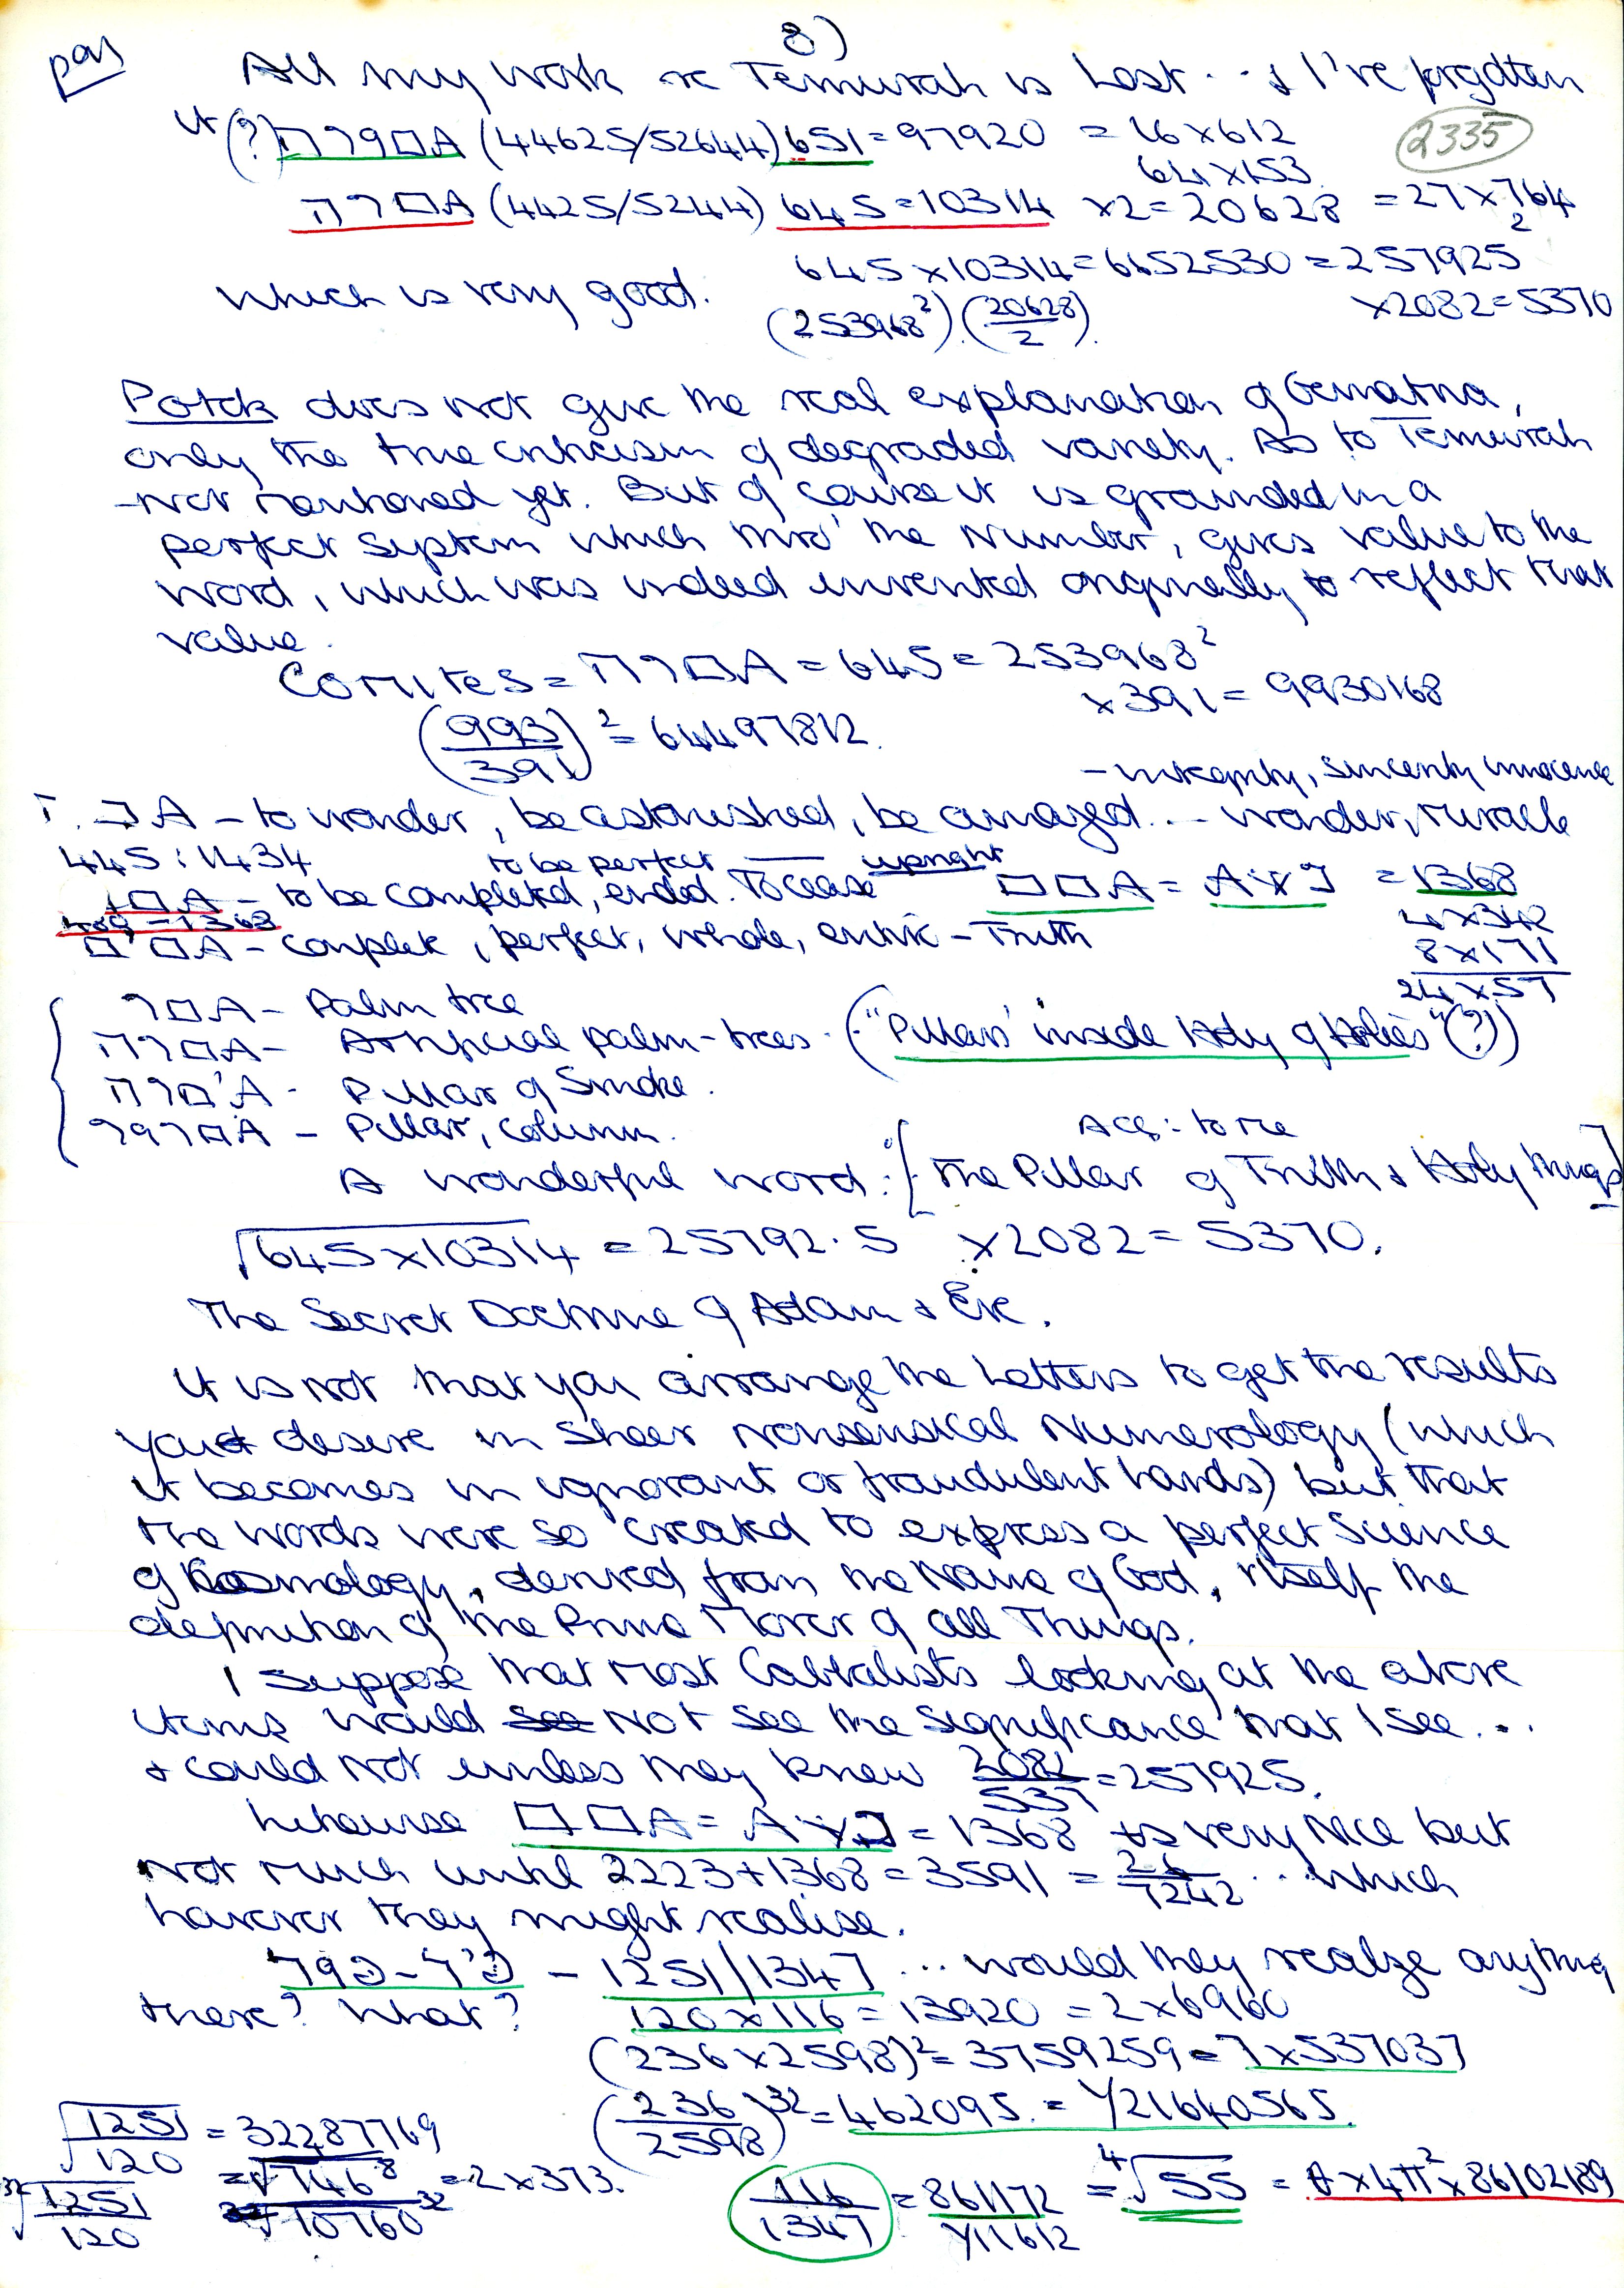 8)
All my work re Temurah is Lost . . & I've forgotten
it (?) ㄇㄱ9□A (44625/52644) 651 = 97920 = 16 x 612
2335
64 x 153
ㄇㄱ□A (4425/5244) 645 = 10314 x2 = 20628 = 27 x 764
645 x 10314 = 6652530 = 257925²
which is very good.
(253968²).(20628/2).
x2082 = 5370
Potok does not give the real explanation of Gematria,
only the true criticism of degraded variety. As to Temurah
- not mentioned yet. But of course it is grounded in a
perfect system which thro' the Number, gives value to the
word, which was indeed invented originally to reflect that
value.
Comites = ㄇㄱ□A = 645 = 253968²
x391 = 9930168
(993/391)² = 64497812.
- integrity, sincerity innocence
A - to wonder, be astonished, be amazed... - wonder, miracle
445 : 1434 to be perfect upright
□A - to be completed, ended. To cease □□A = A = 1368
4 x 342
□'□A - complete, perfect, whole, entire - Truth
8 x 171
24 x 57
ㄱ□A - Palm tree
ㄇㄱ□A - Artificial palm-trees. ("Pillars' inside Holy of Holies" (?))
ㄇㄱ□'A - Pillar of Smoke.
ㄱ9ㄱ□A - Pillar, column.
Acc: to me
A wonderful word : [the Pillar of Truth & Holy things]
√645x10314 = 25792.5 x2082 = 5370.
The Secret Doctrine of Adam & Eve.
It is not that you arrange the Letters to get the results
you desire in sheer nonsensical Numerology (which
it becomes in ignorant or fraudulent hands) but that
the words were so created to express a perfect Science
of Kosmology, derived from the Name of God, itself the
definition of the Prime Mover of all Things.
I suppose that most Cabbalists looking at the above
items would see NOT see the significance that I see...
& could not unless they knew 2082/537 = 257925.
Likewise □□A = A = 1368 is very nice but
not much until 2223 + 1368 = 3591 = 26/7242 . . . which
however they might realise.
- 1251//1347 ... would they realize anything
there? What? 120 x 116 = 13920 = 2 x 6960
(236 x 2598)² = 3759259 = 7 x 537037
(236/2598)³² = 462095. = Y21640565.
√1251/120 = 32287769
= √746⁸ = 2 x 373.
³²√1251/120 10760³²
116/1347 = 861172 = ⁴√55 = A x 4π² x 86102189
Y11612